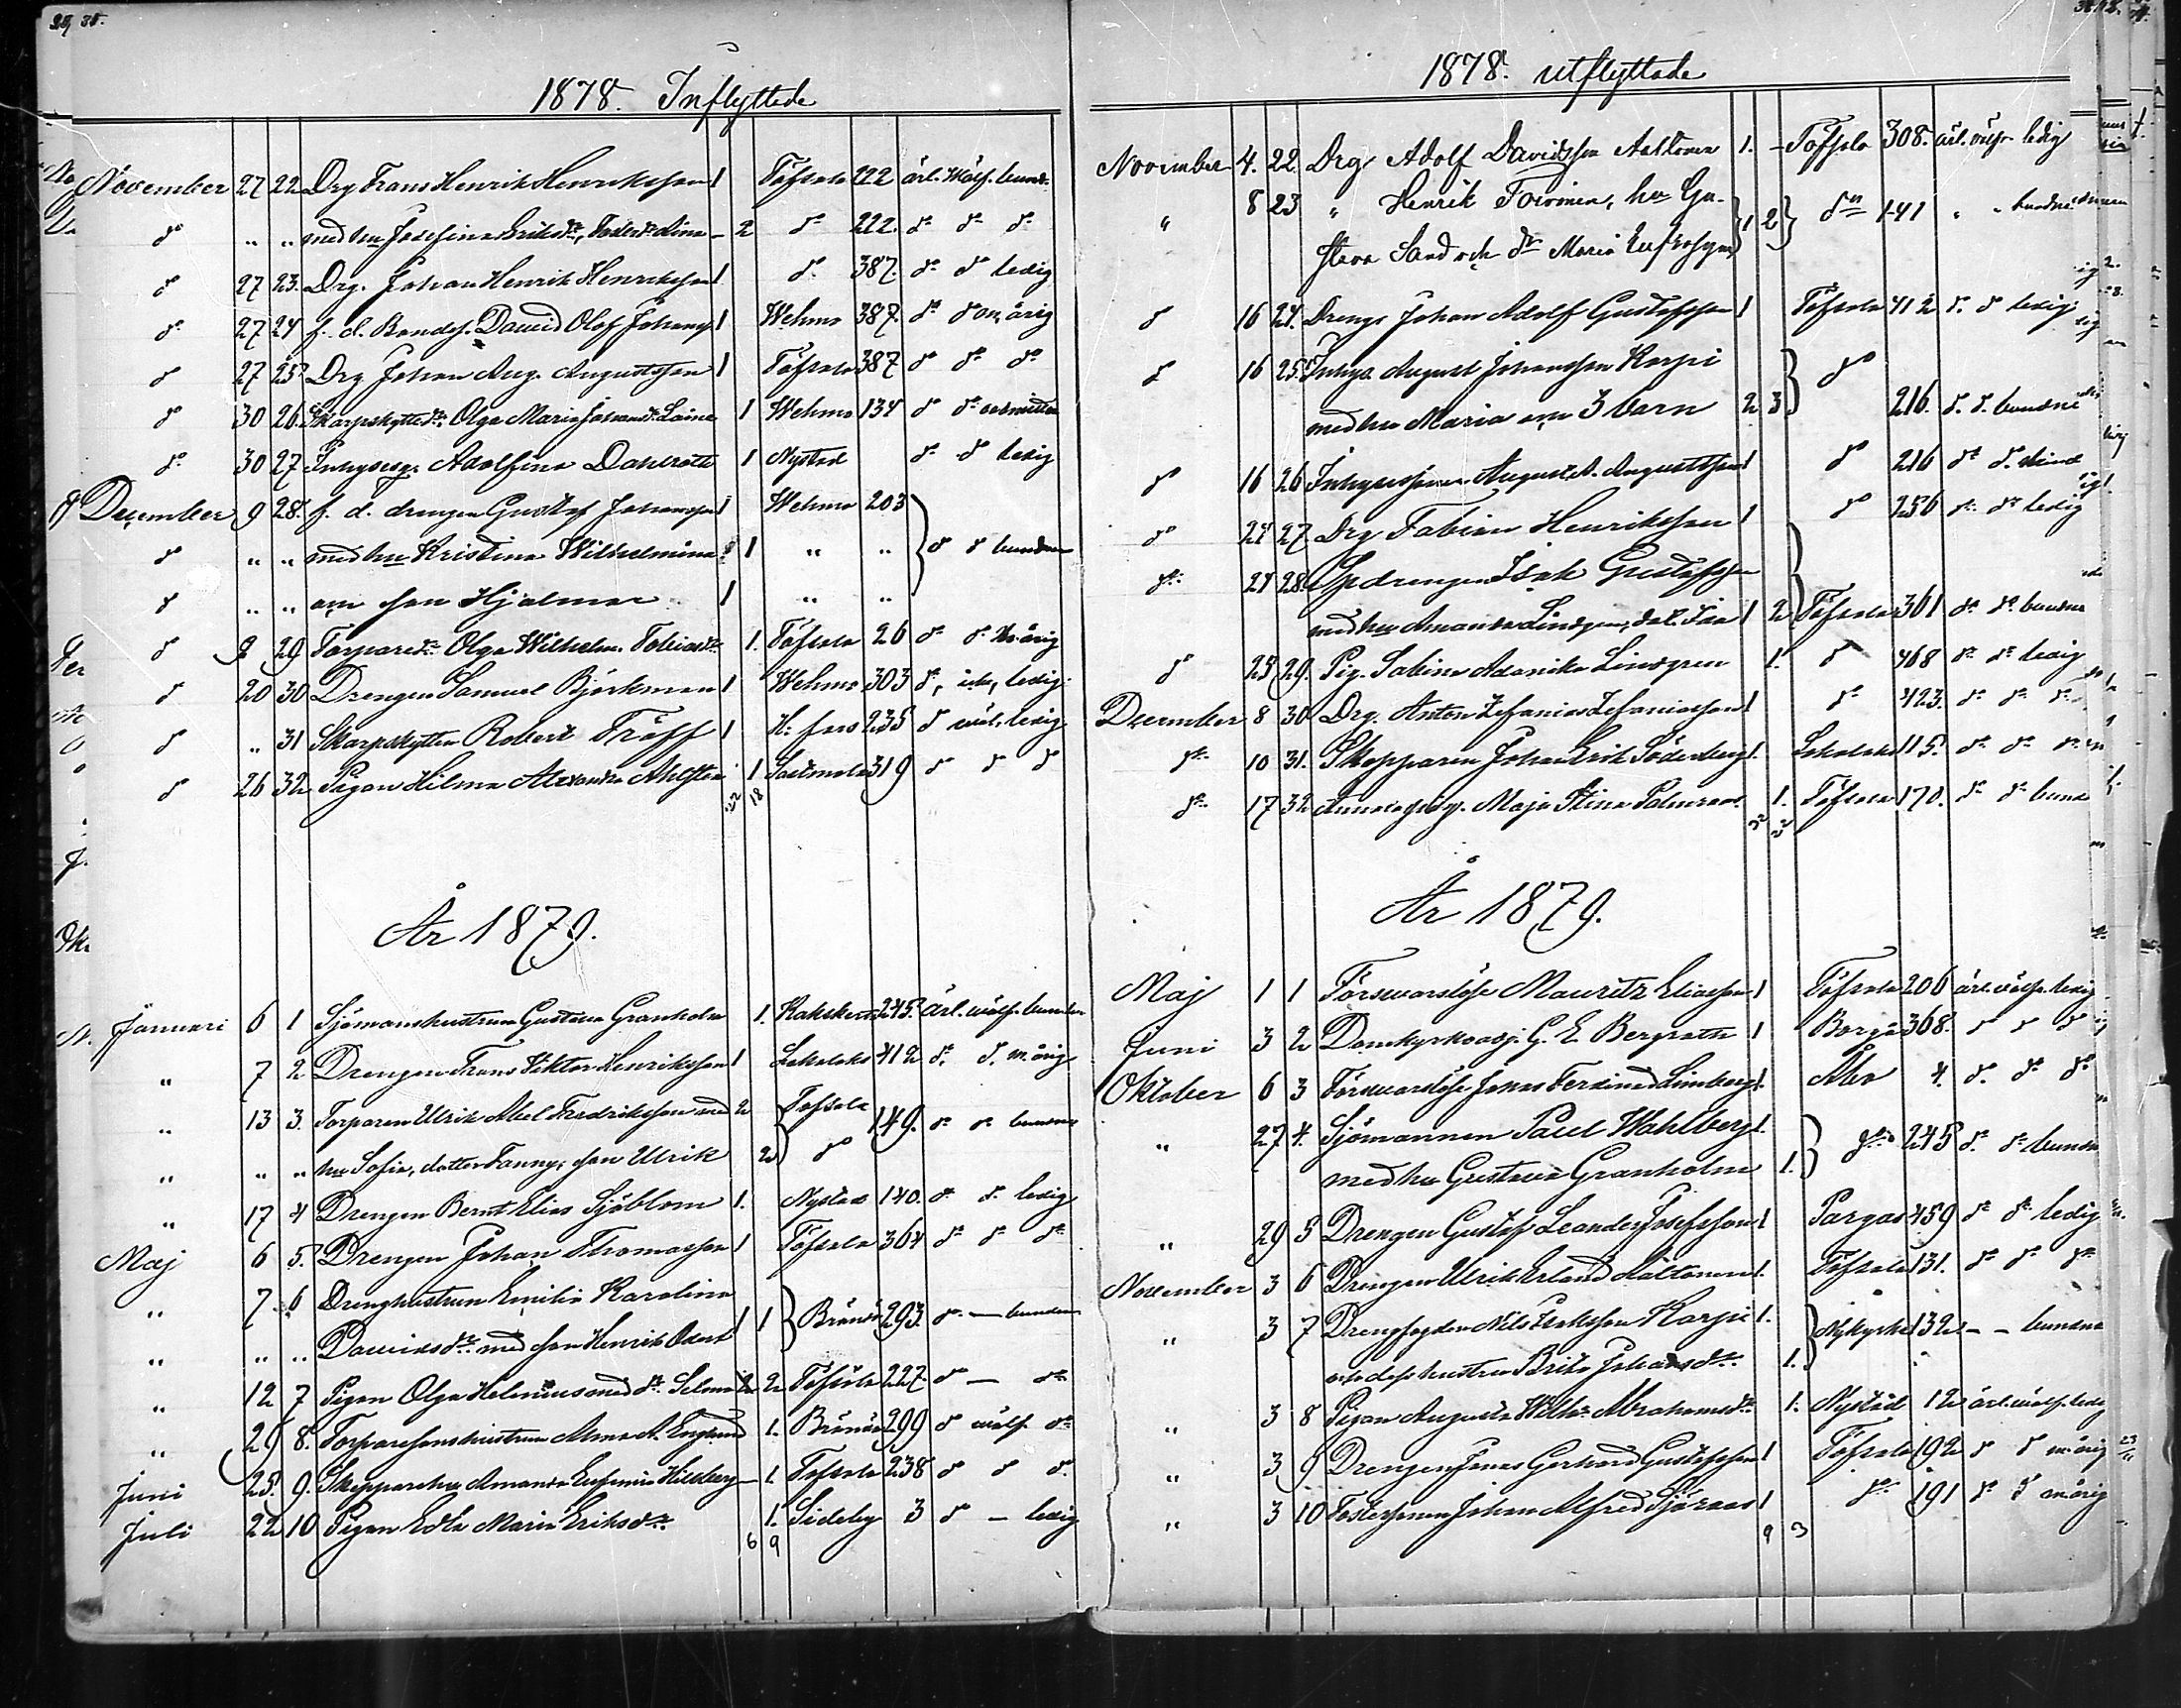 1878. Inflyttede
November 27 22 Drg Frans Henrik Henriksson 1 Töfsala 222 ärl. wälf. bund.
do " " med hu Josefina Eriksdr, Lina 2 do 222. do do do
do 27 23. Drg. Johan Henrik Henriksson 1 do 387. do do ledig
do 27 24 f. d. Bondes. David Olof Johanss. 1 Wehmo 387. do do om.årig
do 27 25. Drg Johan Aug. Augustsson 1 Töfsala 387 do do do
do 30 26. Skarpskyttedr. Olga Maria Johansdr Laine 1 Wehmo 134 do do
do 30 27 Inhysesg. Adolfina Dahlroth 1 Nystad do do ledig
December 9 28. f. d. drengen Gustaf Johansson 1 Wehmo 203
do " " med hu Kristina Wilhelmina 1 " " do do bunden
do " " son Hjalmar 1 " "
do 9 29 Torparedr Olga Wilhelm. Tobiasdr 1. Töfsala 26 do do årig
do 20 30 Drengen Samuel Björkman 1 Wehmo 303 do, ledig
do " 31 Skarpskytten Robert Träff 1 H:fors 235 do wäl. ledig
do 26 32 Pigan Hilma Alexandra 1 319 do do do
22 18
År 1879.
Januari 6 1 Sjömanshustrun Gustava Granholm 1. Kakskerta 245. ärl. wälf. bunden
" 7 2 Drengen Frans Viktor Henriksson 1 Lokalaks 412 do. do. m. årig
" 13 3. Torparen Ulrik Abel Fredriksson med 2 Tofsala 149. do do bunden
" " " hu Sofia, dotter Fanny, son Ulrik 2 do
" 17 4 Drengen Bernt Elias Sjöblom 1. Nystad 140. do do. ledig
Maj 6 5. Drengen Johan Thomasson 1 Töfsala 364 do do do
" 7 6 Drenghustrun Emilia Karolina
" " " Davidsdr med son Henrik 1 1 Brändö 293. do — bunden
" 12 7 Pigan Olga Helenius med dr. Selma 2 Töfsala 227. do — do
" 29 8. Torparesonshustrun Alma A. Englund 1. Brändö 299 do wälf. do
Juni 25. 9. Skepparehu Amanda Eufemia 1. Tofsala 238 do do do.
Juli 22 10 Pigan Edla Maria Eriksdr. 1. Sideby 3 do — ledig
6 9
1878. utflyttade
November 4. 22. Drg Adolf Davidsson Aaltonen 1. — Töfsala 308. ärl. wälfr. ledig
" 8 23 " Henrik Toivonen, hu Gu-
stava Sand och dr Maria Eufrosyne 1 2 do 141 " " bundne
do 16 24. Drengs Johan Adolf Gustafsson 1 Töfsala 412 do. do ledig
do 16 25. Inhys. August Johansson Karpi do
med hu Maria o. 3 barn 2 3 216. do. do. bundne
do 16 26 Inhysessonen August A. Augustsson 1 do 216 do do.
do 24 27. Drg Fabian Henriksson 1 do 256 do do ledig
do 24 28. Spdrengen Isak Gustafsson
med hu Amanda Lindgren, dot. Ida 1 2 Töfsala 361 do do bundne
do 25 29. Pig. Sabina Adamika Lindgren 1. do 468 do do ledig
December 8 30 Drg. Anton Zefanias Zefaniasson 1 do 423. do do do
do 10 31. Skepparen Johan Erik Söderberg 1. Lokalaks 115. do do do
do 17 32 Maja Stina Palmroos. 1. Töfsala 170. do do bunde
År 1879.
Maj 1 1 Förswarslöse Mauritz Eliasson 1 Töfsala 206 ärl. wälfr. ledig
Juni 3 2 Domkyrkoadj. G. E. Bergroth 1 Borgå 368. do do do
Oktober 6 3 Förswarslöse Jonas Ferdinand Limberg 1. Åbo 4. do. do do
" 27 4. Sjömannen Paul Wahlberg 1.
med hu Gustava Granholm 1. do 245 do. do bunde
" 29 5 Drengen Gustaf Leander Josefsson 1 Pargas 459 do do ledig
November 3 6 Drengen Ulrik Erland Aaltonen 1. Töfsala 131. do do do
" 3 7 Drengfogden Nils Isaksson Karpi 1.
och dess hustru Brita Johansdr. 1. Nykyrka 132 — — bundne
" 3 8 Pigan Augusta Wilh. Abrahamsdr. 1. Nystad 12 ärl. wälf. ledig
" 3 9 Drengen Jonas Gerhard Gustafsson 1 Töfsala 192 do do m.årig
" 3 10 Fostersonen Johan Alfred Sjöroos 1 do 191 do do m.årig
9 3